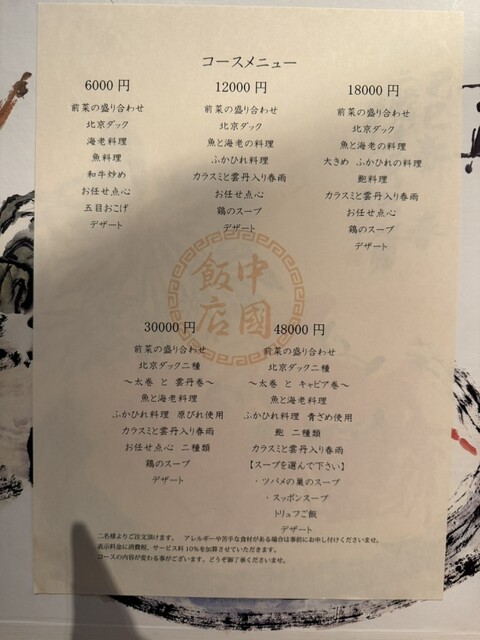 コースメニュー
6000 円
前菜の盛り合わせ
北京ダック
海老料理
魚料理
和牛炒め
お任せ点心
五目おこげ
デザート
12000 円
前菜の盛り合わせ
北京ダック
魚と海老の料理
ふかひれ料理
カラスミと雲丹入り春雨
お任せ点心
鶏のスープ
デザート
18000 円
前菜の盛り合わせ
北京ダック
魚と海老の料理
大きめ ふかひれの料理
鮑料理
カラスミと雲丹入り春雨
お任せ点心
鶏のスープ
デザート
中國
飯店
30000 円
前菜の盛り合わせ
北京ダック二種
～太巻 と 雲丹巻～
魚と海老料理
ふかひれ料理 原びれ使用
カラスミと雲丹入り春雨
お任せ点心 二種類
鶏のスープ
デザート
48000 円
前菜の盛り合わせ
北京ダック二種
～太巻 と キャビア巻～
魚と海老料理
ふかひれ料理 青ざめ使用
鮑 二種類
カラスミと雲丹入り春雨
【スープを選んで下さい】
・ツバメの巣のスープ
・スッポンスープ
トリュフご飯
デザート
二名様よりご注文頂けます。 アレルギーや苦手な食材がある場合は事前にお申し付けくださいませ。
表示料金に消費税、サービス料 10%を加算させていただきます。
コースの内容が変わる事がございます。どうぞ御了承くださいませ。